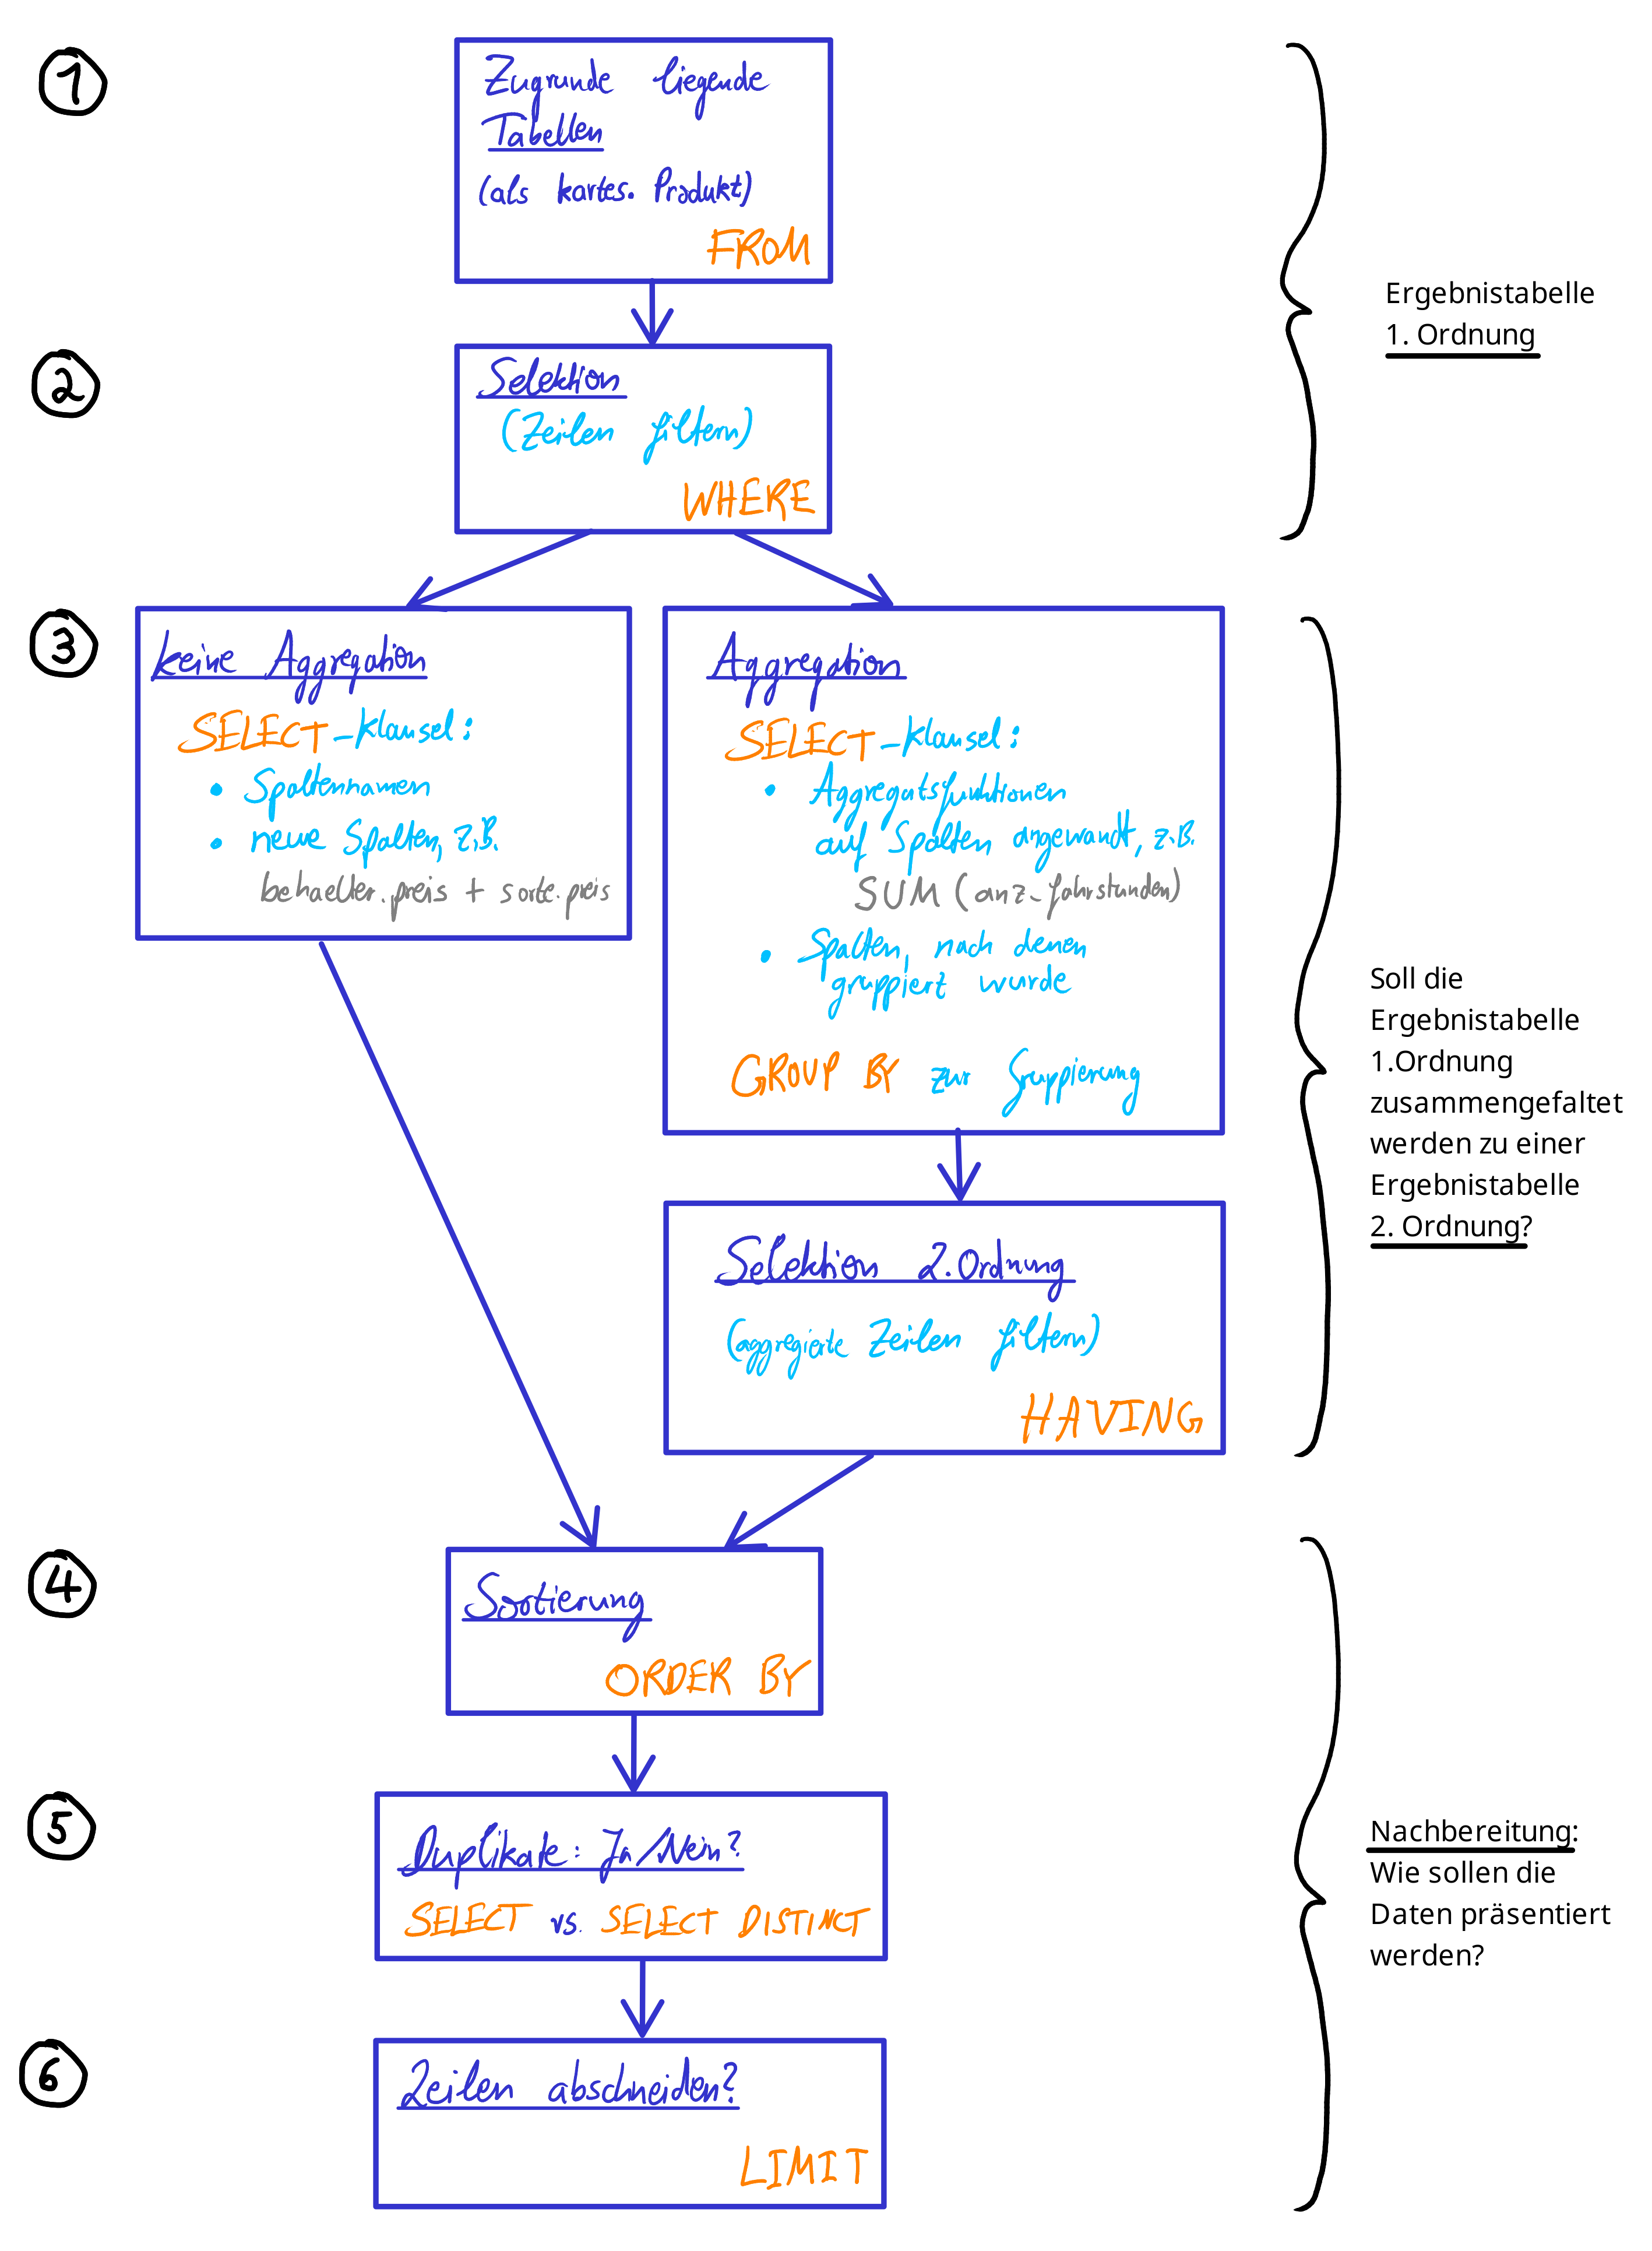 1
Zugrunde liegende
Tabellen
(als kartes. Produkt)
FROM
Ergebnistabelle
1. Ordnung
2
Selektion
(Zeilen filtern)
WHERE
3
keine Aggregation
SELECT-Klausel:
• Spaltennamen
• neue Spalten, z.B.
behaelter.preis + sorte.preis
Aggregation
SELECT-Klausel:
• Aggregatsfunktionen
auf Spalten angewandt, z.B.
SUM (anz_fahrstunden)
• Spalten, nach denen
gruppiert wurde
GROUP BY zur Gruppierung
Selektion 2. Ordnung
(aggregierte Zeilen filtern)
HAVING
Soll die
Ergebnistabelle
1.Ordnung
zusammengefaltet
werden zu einer
Ergebnistabelle
2. Ordnung?
4
Sortierung
ORDER BY
5
Duplikate: Ja/Nein?
SELECT vs. SELECT DISTINCT
6
Zeilen abschneiden?
LIMIT
Nachbereitung:
Wie sollen die
Daten präsentiert
werden?